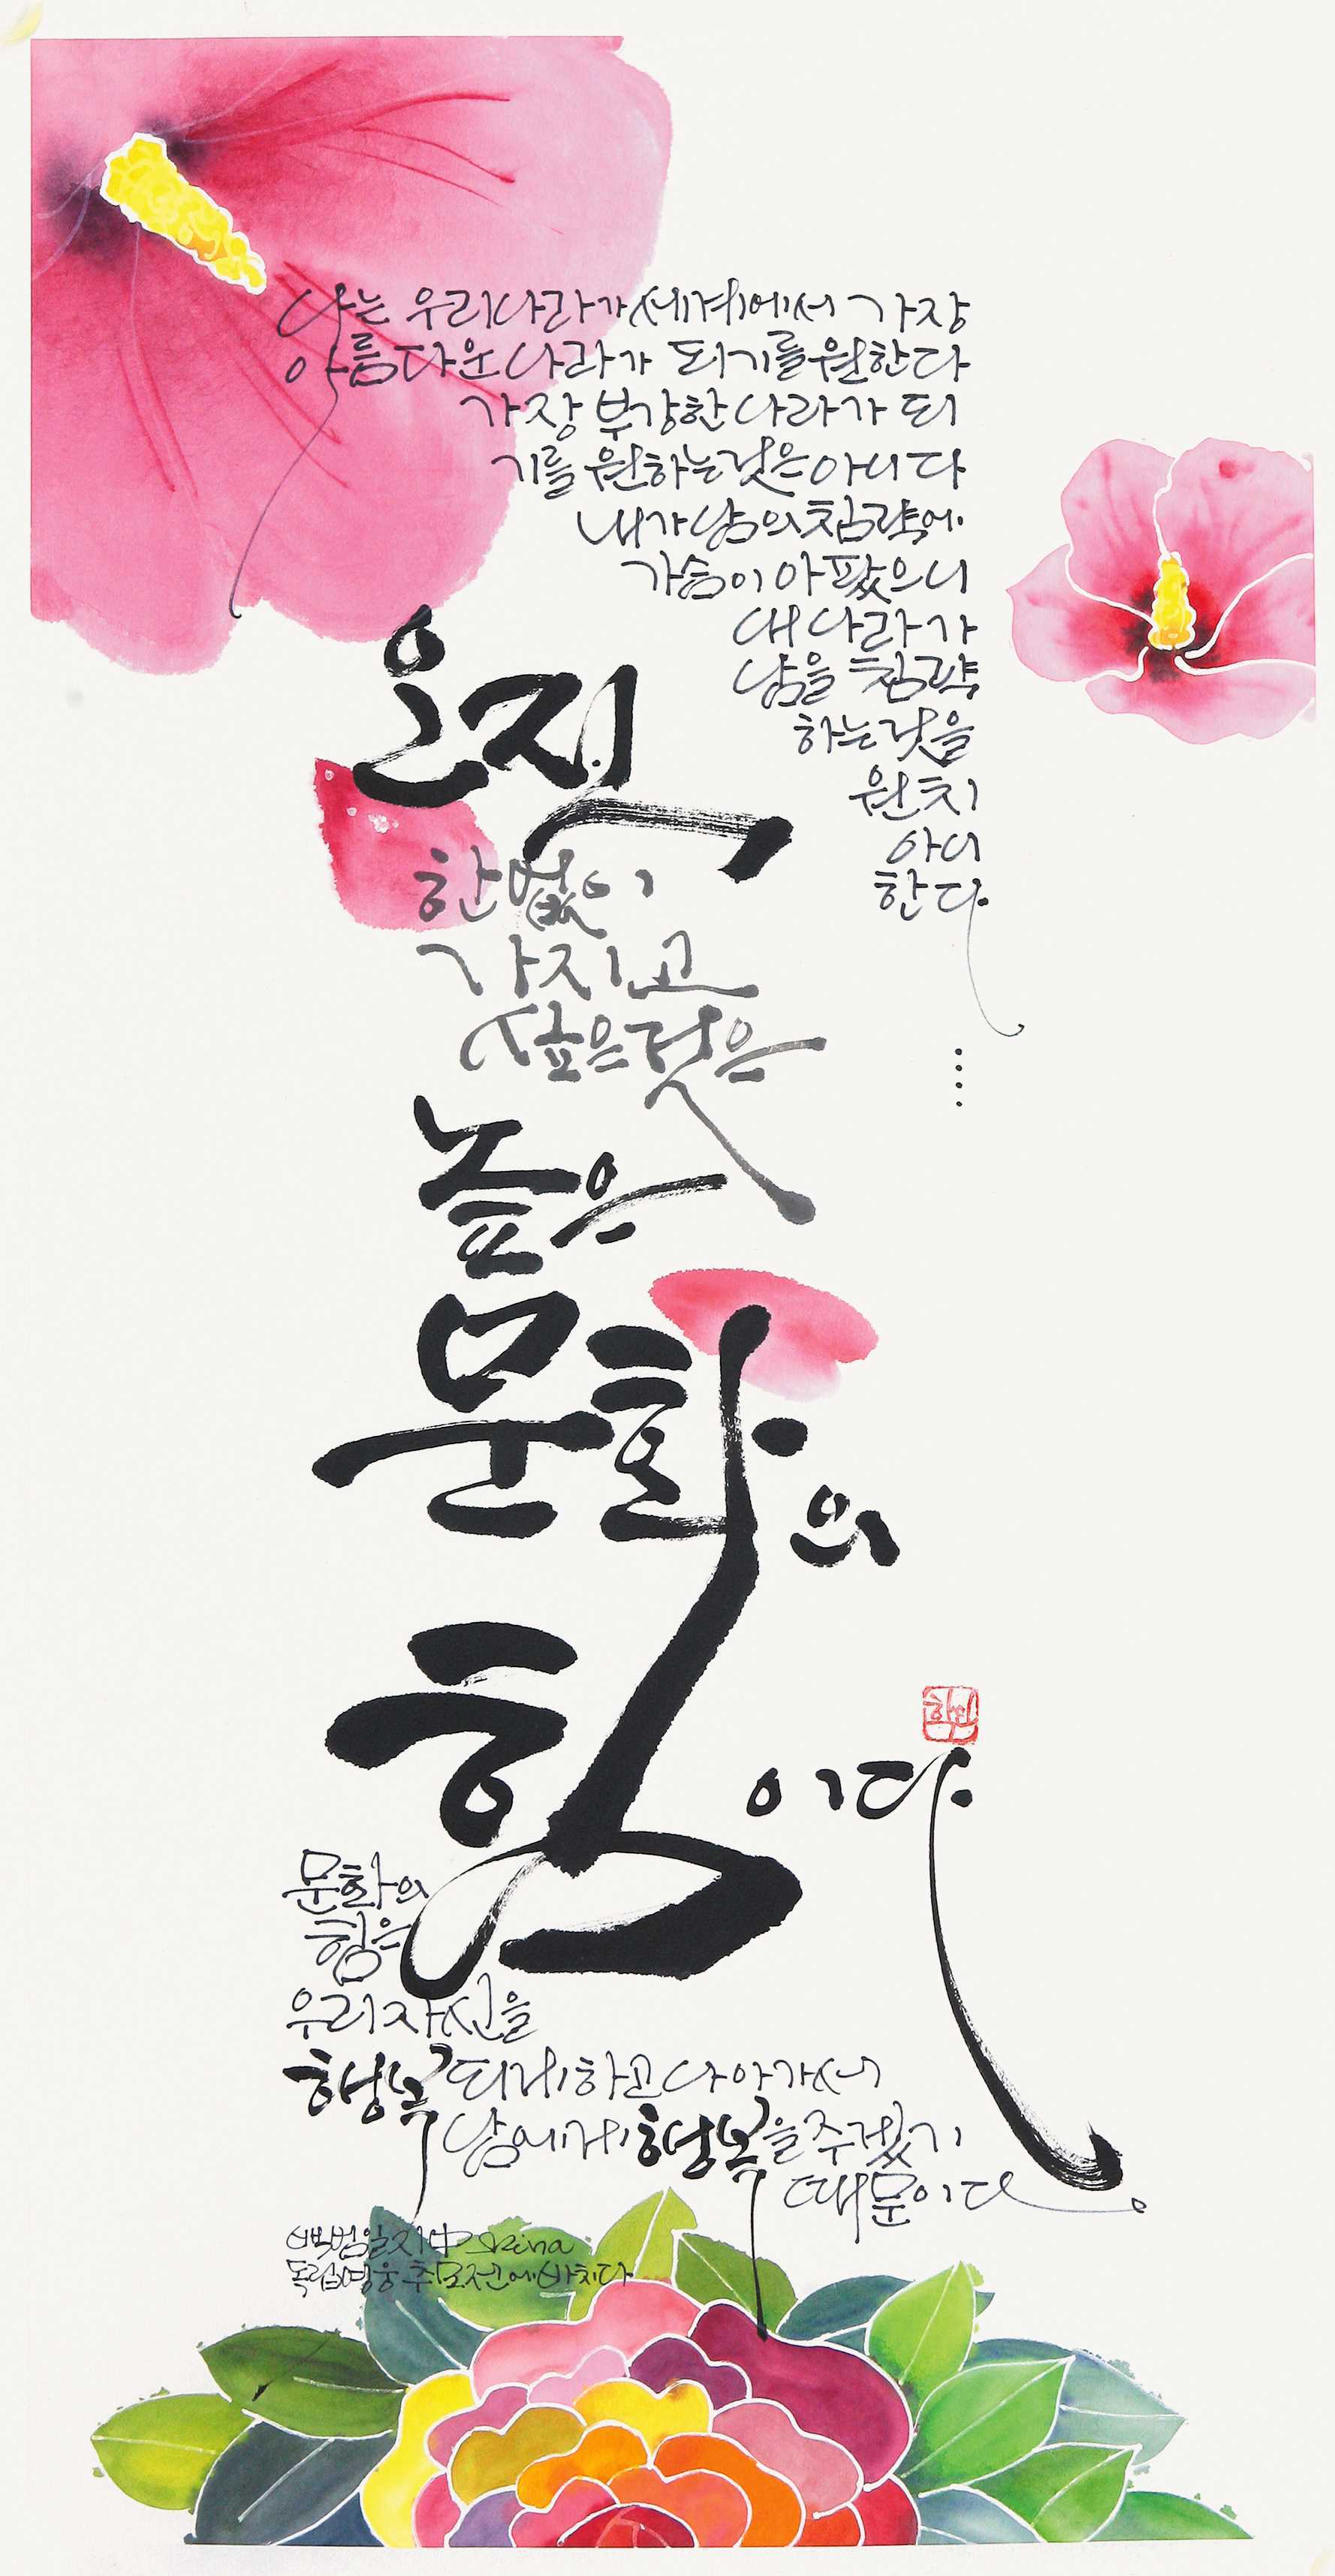 나는 우리나라가 세계에서 가장
아름다운 나라가 되기를 원한다
가장 부강한 나라가 되
기를 원하는 것은 아니다
내가 남의 침략에
가슴이 아팠으니
내 나라가
남을 침략
하는 것을
원치
아니
한다.
....
오직
한없이
가지고
싶은 것은
높은
문화의
힘이다.
문화의
힘은
우리 자신을
행복되게 하고 나아가서
남에게 행복을 주겠기
때문이다
백범일지 中
독립영웅 추모전에 바치다